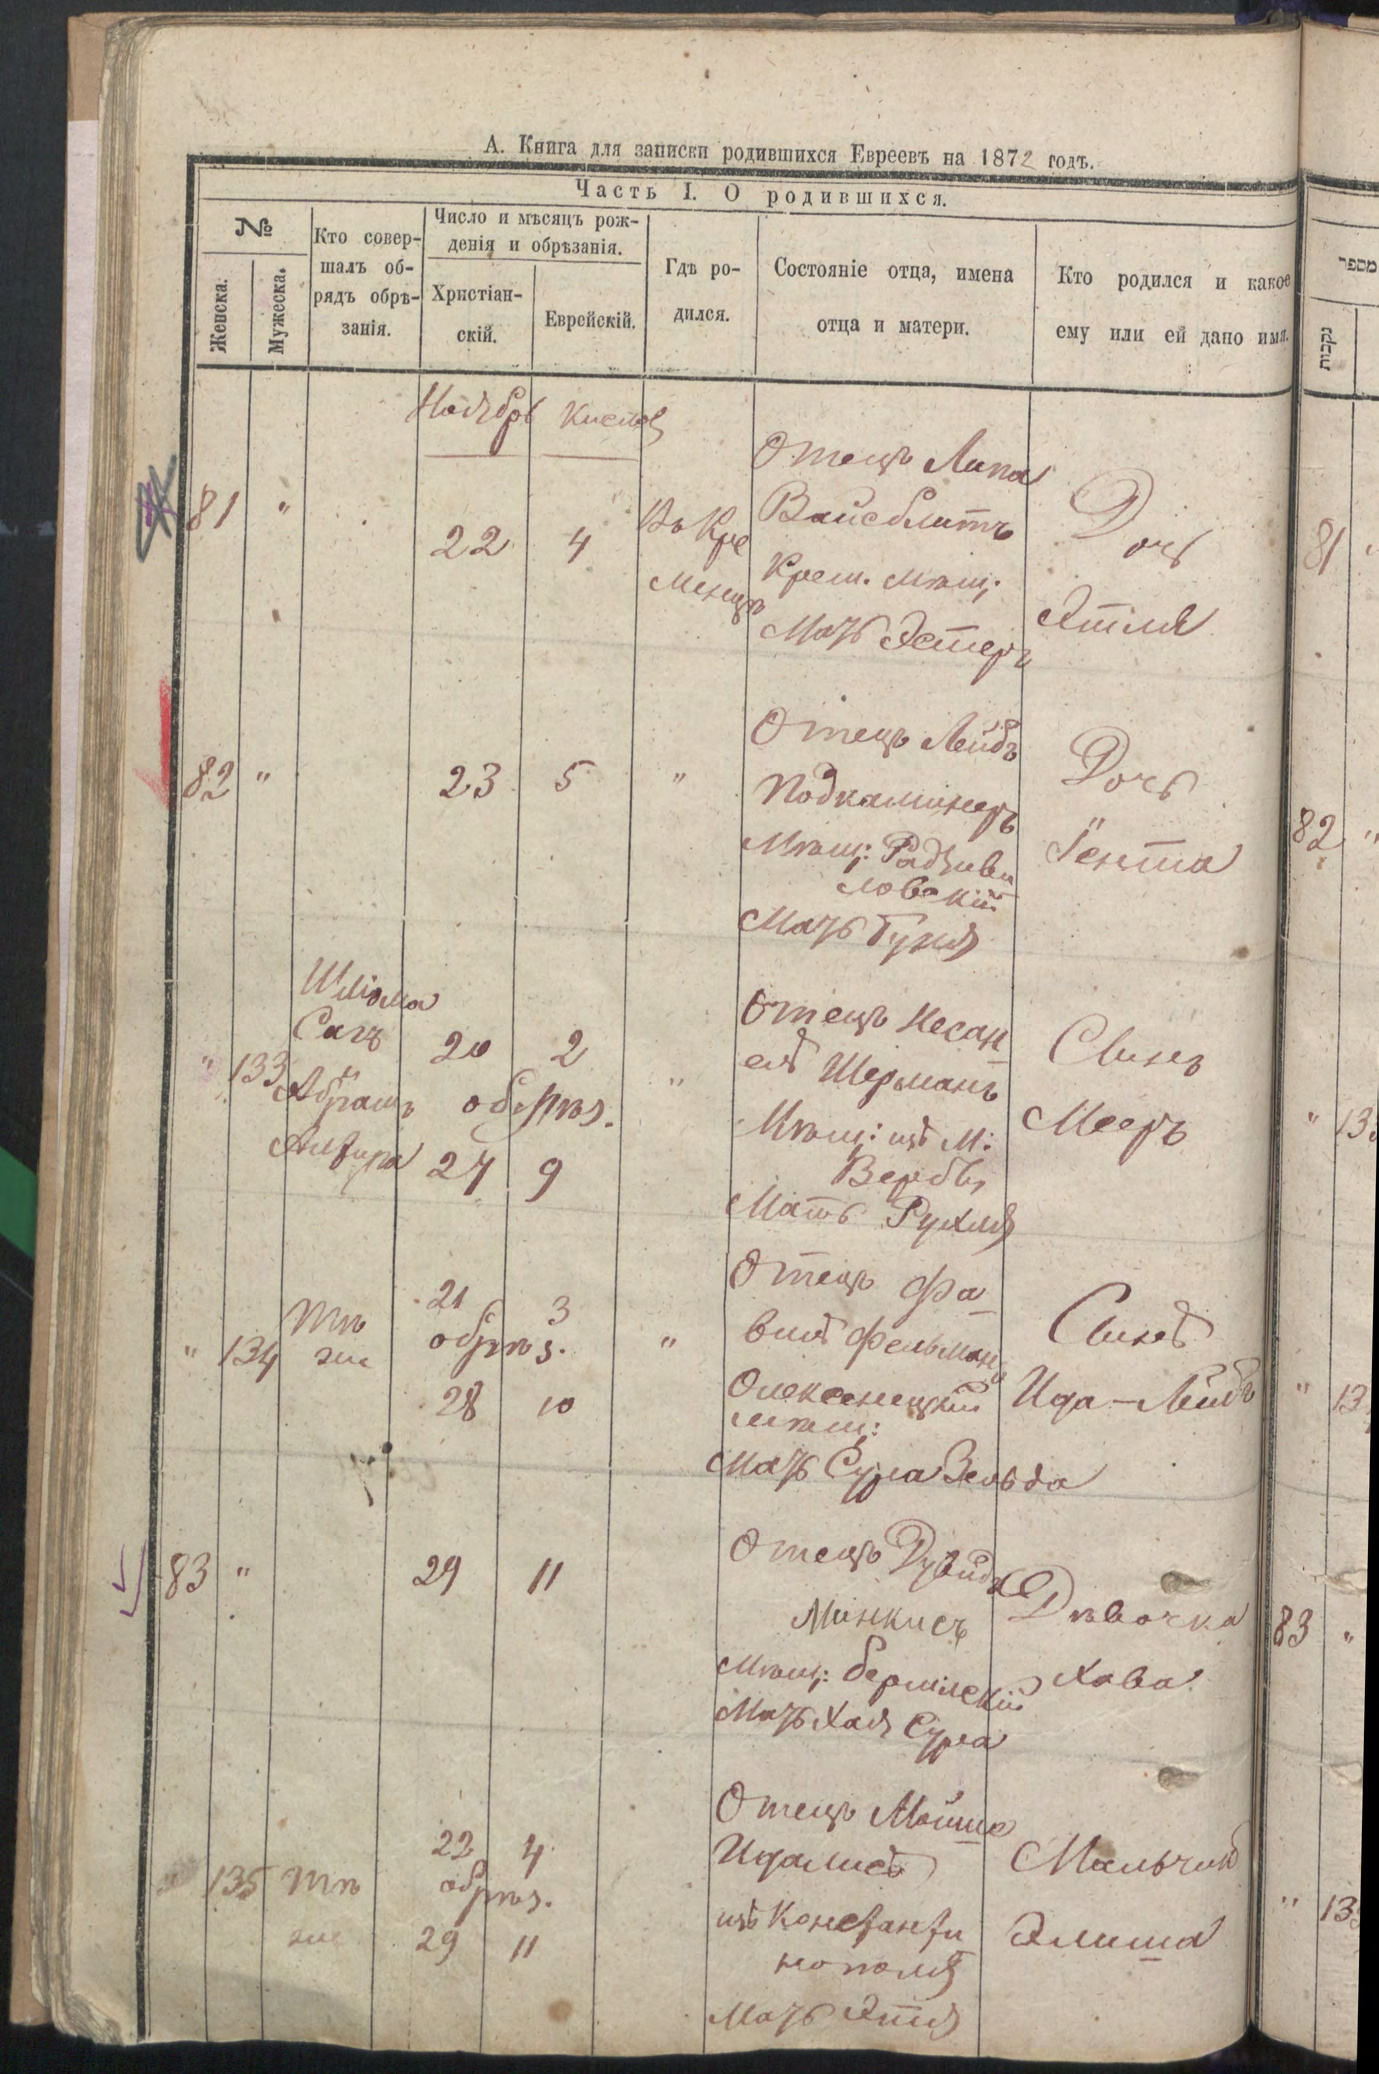 А. Книга для записки родившихся Евреевъ на 1872 годъ.
Часть I. О родившихся.
№
Женска.
Мужеска.
Кто совер-
шалъ об-
рядъ обрѣ-
занія.
Число и мѣсяцъ рож-
денія и обрѣзанія.
Христіан-
скій.
Еврейскій.
Гдѣ ро-
дился.
Состояніе отца, имена
отца и матери.
Кто родился и какое
ему или ей дано имя.
מספר
נקבות
Ноябрь Кислев
81 "
22 4
Въ Кре
менцѣ
Отецъ Липа
Вайсблатъ
Крем. мѣщ.
Мать Эстеръ
Дочь
Этля
81
82 "
23 5 "
Отецъ Лейбъ
Подкаминеръ
Мѣщ: Радзиви
ловскій
Мать
Дочь
Гента
82 "
" 133
Шлiома
Сагъ
Абрамъ
20 2
обрѣз.
27 9
"
Отецъ Несан-
ель Шерманъ
Мѣщ: изъ м:
Вербы
Мать Рухля
Сынъ
Мееръ
" 13
" 134
Тѣ
же
21 3
обрѣз.
28 10
"
Отецъ Фа-
вишъ Фельманъ
Олексенецкій
мѣщ:
Мать Сура Зельда
Сынъ
Ица-Лейбъ
" 13
83 "
29 11
Отецъ Дувидъ
Минкисъ
Мѣщ:
Мать Хая Сура
Дѣвочка
Хава
83 "
135
Тѣ
же
22 4
обрѣз.
29 11
Отецъ Мойше
изъ Константи
нополя
Мать Этля
Мальчикъ
Элиша
" 13